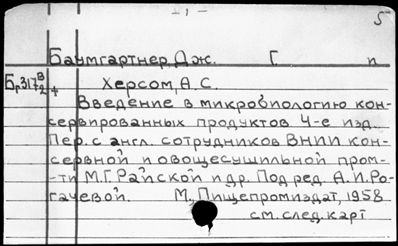 - 1 -
5
Баумгартнер, Дж. Г п
Бр3178/2 + Херсом, А. С.
Введение в микробиологию кон-
сервированных продуктов 4-е изд.
Пер. с англ. сотрудников ВНИИ кон-
сервной и овощесушильной пром-
-ти М.Г. Райской и др. Под ред. А.И. Ро-
гачевой. М., Пищепромиздат, 1958
см. след. карт